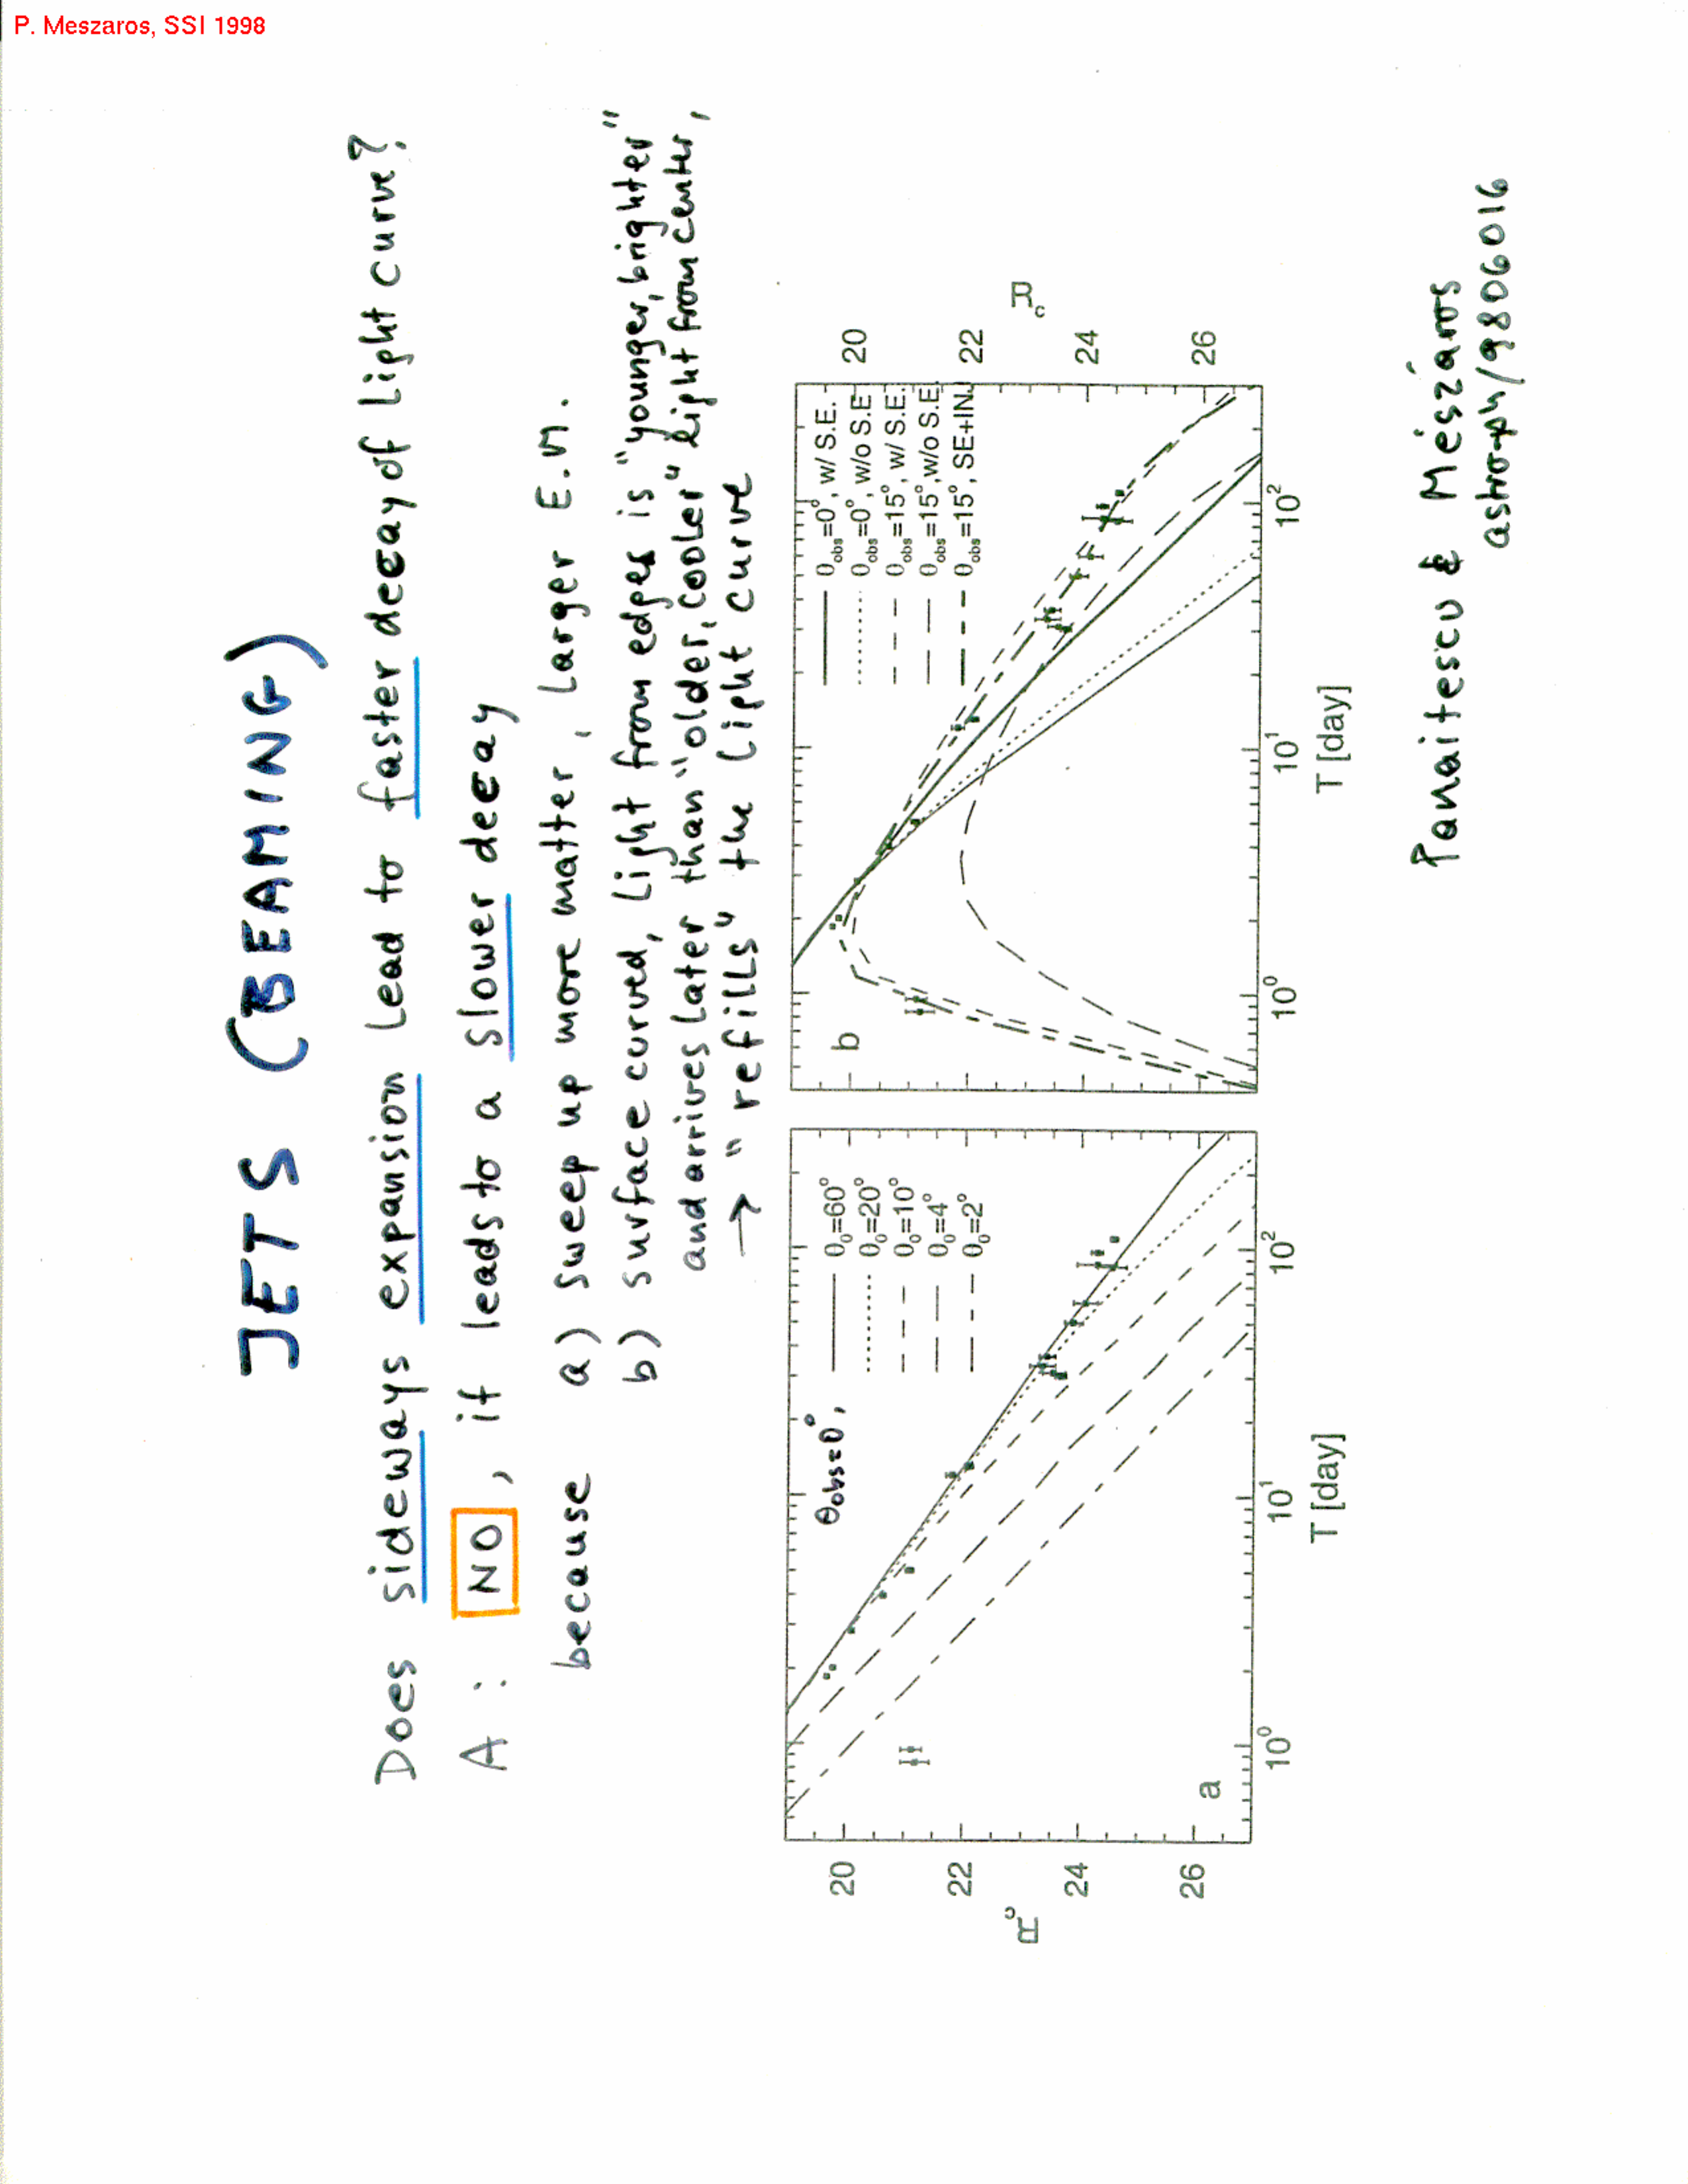 P. Meszaros, SSI 1998
JETS (BEAMING)
Does sideways expansion lead to faster decay of light curve?
A: NO, it leads to a slower decay
because a) sweep up more matter, larger E.M.
b) surface curved, light from edges is "younger, brighter"
and arrives later than "older, cooler" light from center,
→ "refills" the light curve
θobs=0°,
θ₀=60°
θ₀=20°
θ₀=10°
θ₀=4°
θ₀=2°
a
20
22
24
26
R_c
10⁰
10¹
10²
T [day]
b
θ_obs=0°, w/ S.E.
θ_obs=0°, w/o S.E
θ_obs=15°, w/ S.E.
θ_obs=15°, w/o S.E
θ_obs=15°, SE+IN.
20
22
24
26
R_c
10⁰
10¹
10²
T [day]
Panaitescu & Mészáros
astro-ph/9806016